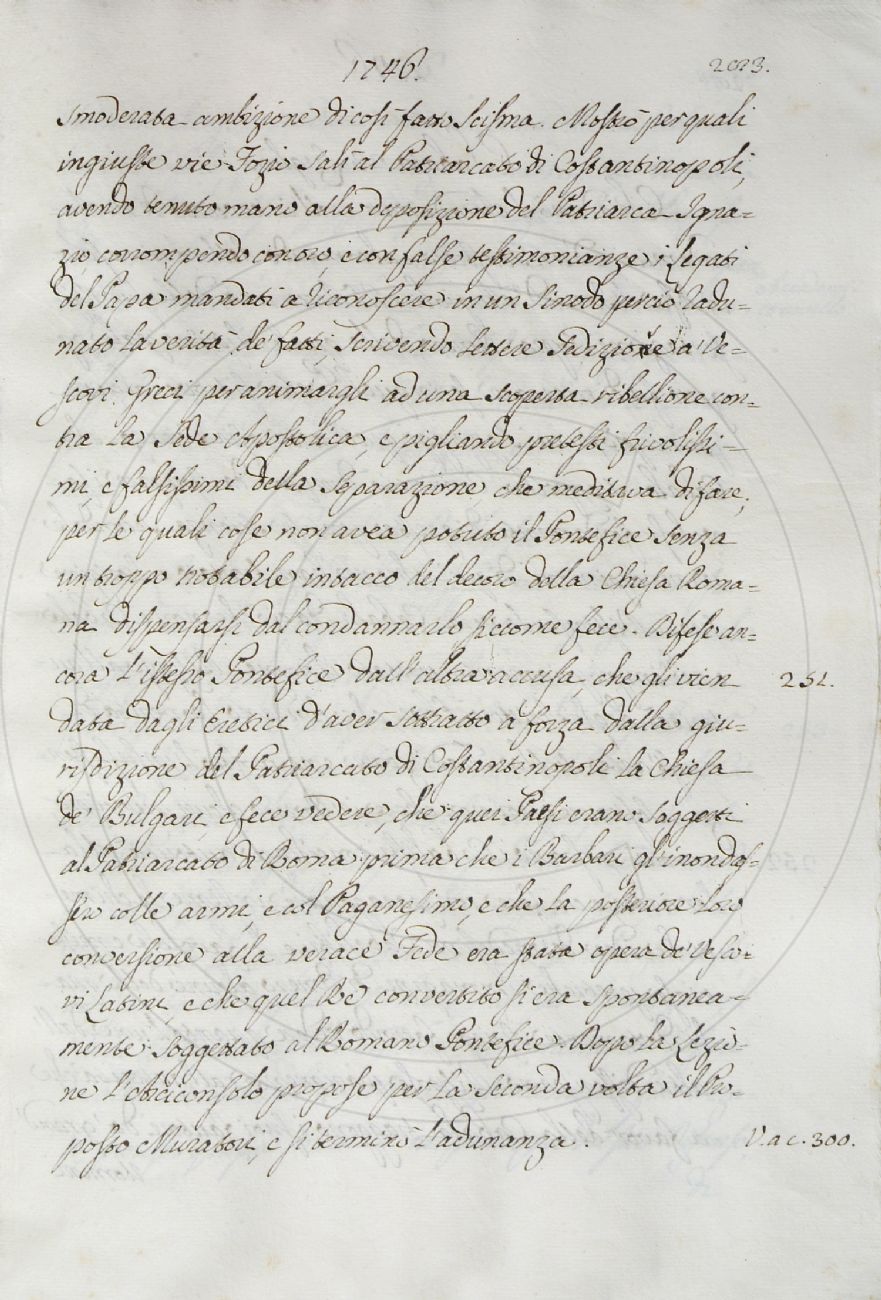 1746.
2023.
smoderata ambizione di così fatto Scisma. Mostrò per quali
ingiuste vie Fozio salì al Patriarcato di Costantinopoli,
avendo tenuto mano alla deposizione del Patriarca Igna-
zio, corrompendo con oro, e con false testimonianze i Legati
del Papa mandati a riconoscere in un Sinodo perciò radu-
nato la verità de' fatti, scrivendo lettere sediziose a' Ve-
scovi Greci per animargli ad una scoperta ribellione con-
tra la Sede Apostolica, e pigliando pretesti frivolissi-
mi, e falsissimi della separazione che meditava di fare;
per le quali cose non avea potuto il Pontefice senza
un troppo notabile intacco del decoro della Chiesa Roma-
na dispensarsi dal condannarlo siccome fece. Difese an-
cora l'istesso Pontefice dall'altra accusa, che gli vien
251.
data dagli Eretici d'aver sottratto a forza dalla giu-
risdizione del Patriarcato di Costantinopoli la Chiesa
de' Bulgari, e fece vedere, che quei Paesi erano soggetti
al Patriarcato di Roma prima che i Barbari gl'inondas-
sero colle armi, e col Paganesimo, e che la posteriore loro
conversione alla verace Fede era stata opera de' Vesco-
vi Latini, e che quel Re convertito si era spontanea-
mente soggettato al Romano Pontefice. Dopo la Lezio-
ne l'Arciconsolo propose per la seconda volta il Pro-
posto Muratori, e si terminò l'adunanza.
V. a c. 300.